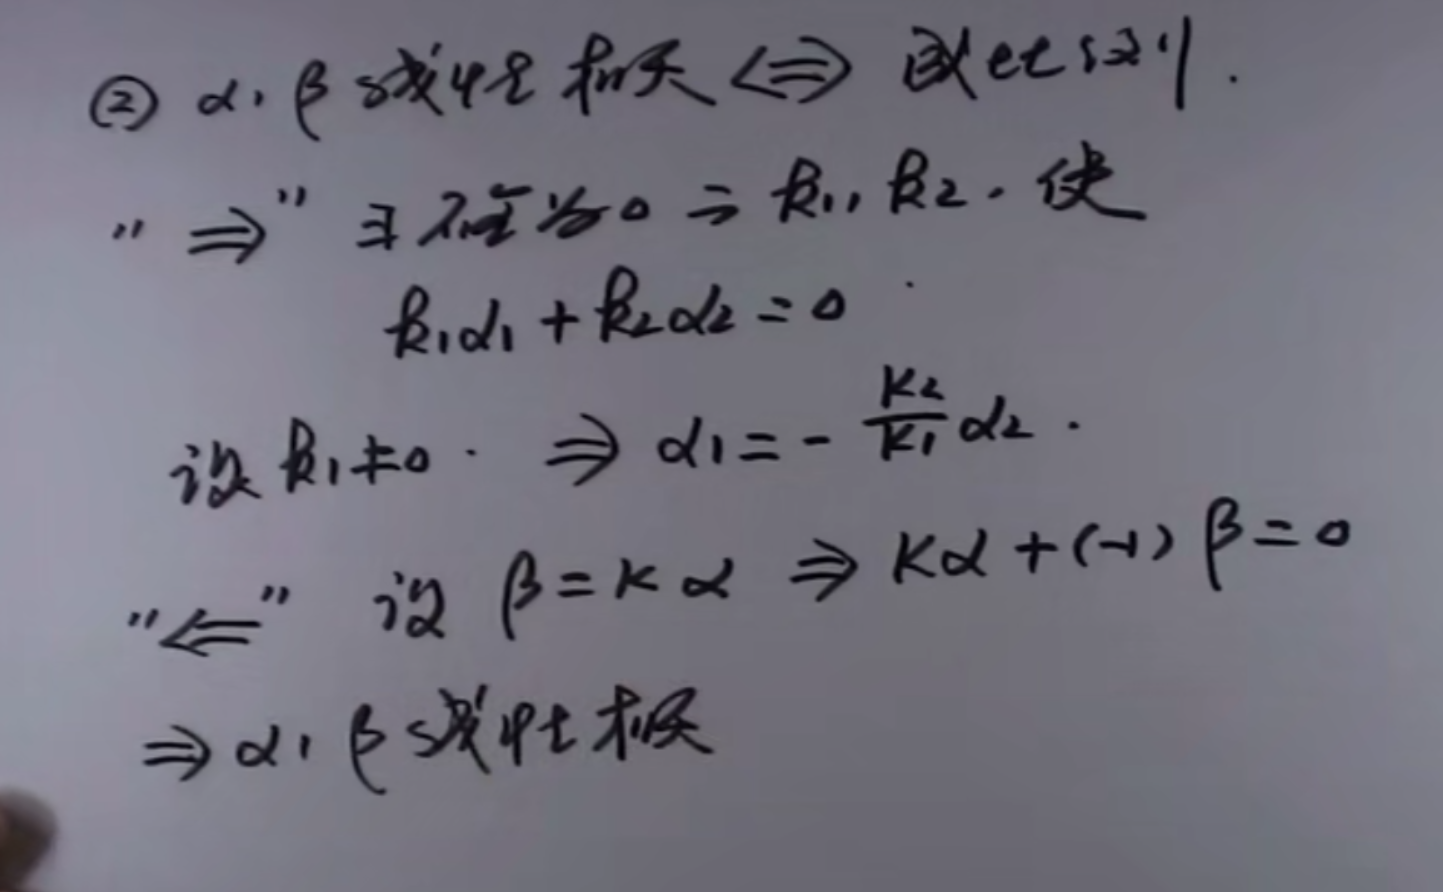 ② α, β 线性相关 <=> 成比例.
"⇒" ∃ 不全为0 = k₁, k₂. 使
k₁α₁ + k₂α₂ = 0
设 k₁≠0. ⇒ α₁ = - k₂/k₁ α₂.
"⇐" 设 β = kα ⇒ kα + (-1) β = 0
⇒ α, β 线性相关